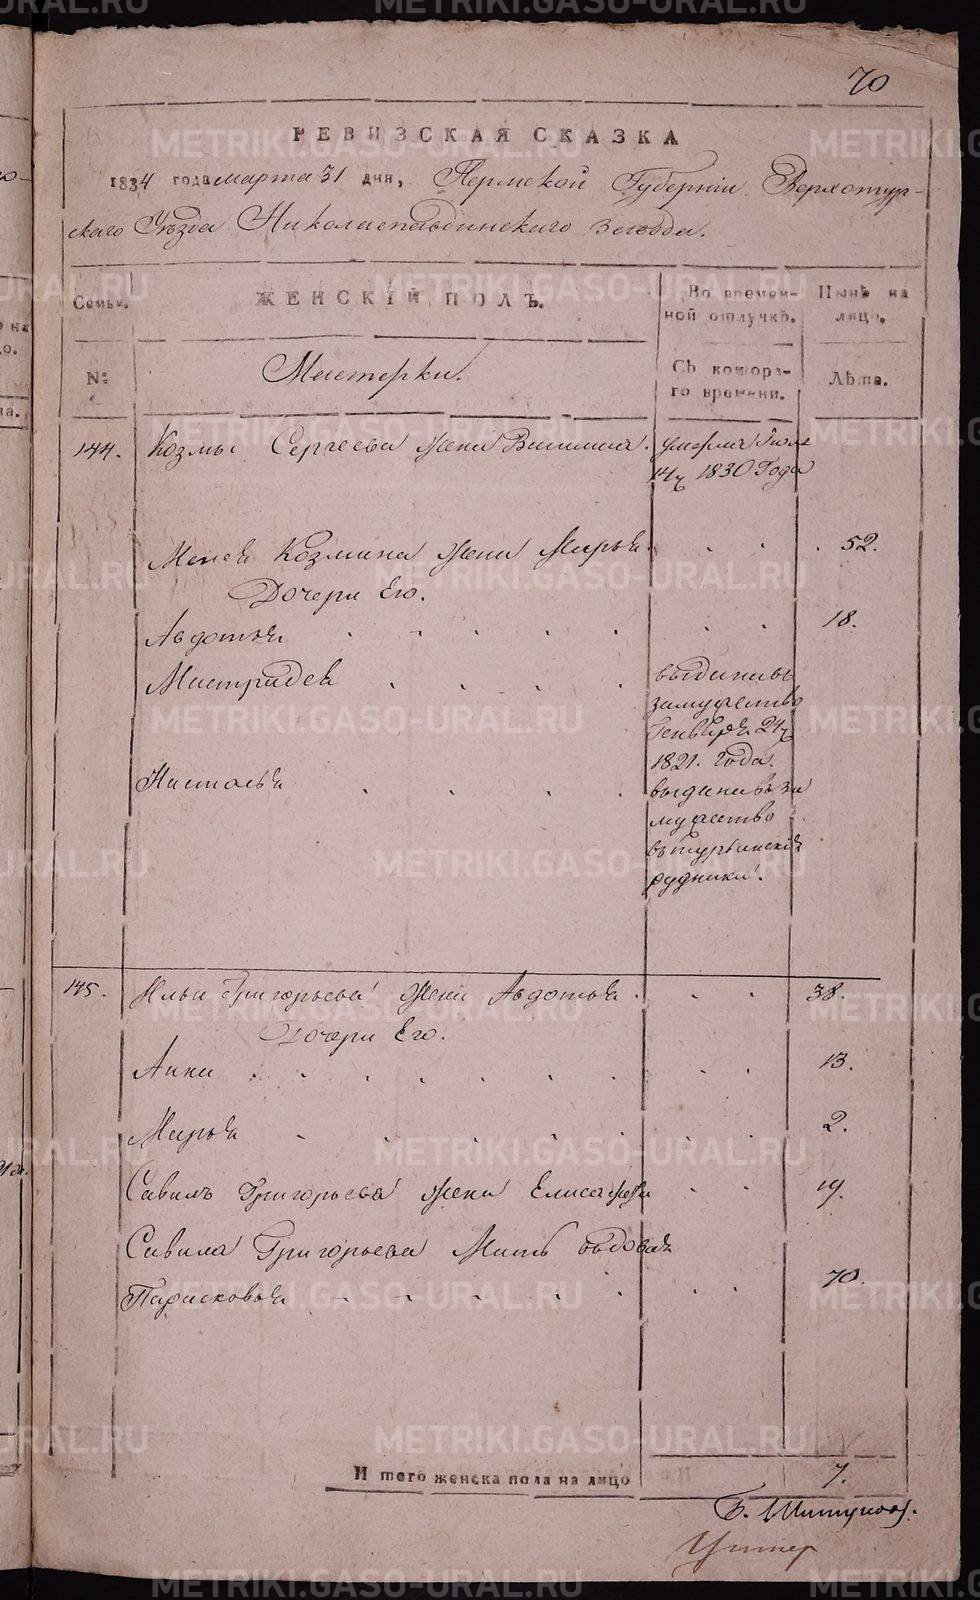 70
РЕВИЗСКАЯ СКАЗКА
1834 года марта 31 дня, Пермской Губернiи Верхотур-
скаго Уѣзда Николаепавдинскаго Завода.
Семьи. ЖЕНСКIЙ ПОЛЪ. Во времен-ной отлучкѣ. Нынѣ на лицо.
№ Мастерки. Съ котора-го времени. Лѣта.
144. Козмы Сергеева жена Василиса. умерла Июля
14ч 1830 Года
Козмина жена Марья. 52.
Дочери Его.
Авдотья 18.
Мастридея выдана въ
замужество
Генваря 24ч
1821. Года.
Настасья выдана въ за
мужество
въ турьинскiя
рудники.
145. Ильи Григорьева жена Авдотья 38.
Дочери Его.
Анна 13.
Марья 2.
Савилъ Григорьева жена Елисавета 19.
Савила Григорьева Мать вдова
Парасковья 70.
И того женска пола на лицо 7.
METRIKI.GASO-URAL.RU